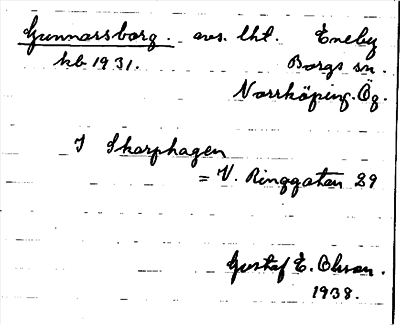 Gunnarsborg. avs. lht. Eneby
kb 1931. Borgs sn.
Norrköping. Ög.
I Skarphagen
= V. Ringgatan 29
Gustaf E. Olsson.
1938.